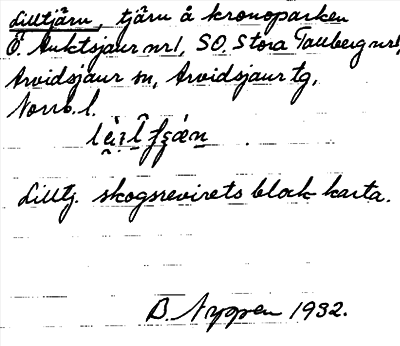 Lilltjärn, tjärn å kronoparken
Ö. Auktsjaur nr 1, SO, Stora Tallberg nr 1,
Arvidsjaur sn, Arvidsjaur tg,
Norrb. l.
Lilltj. skogsrevirets block karta.
B. Nygren 1932.